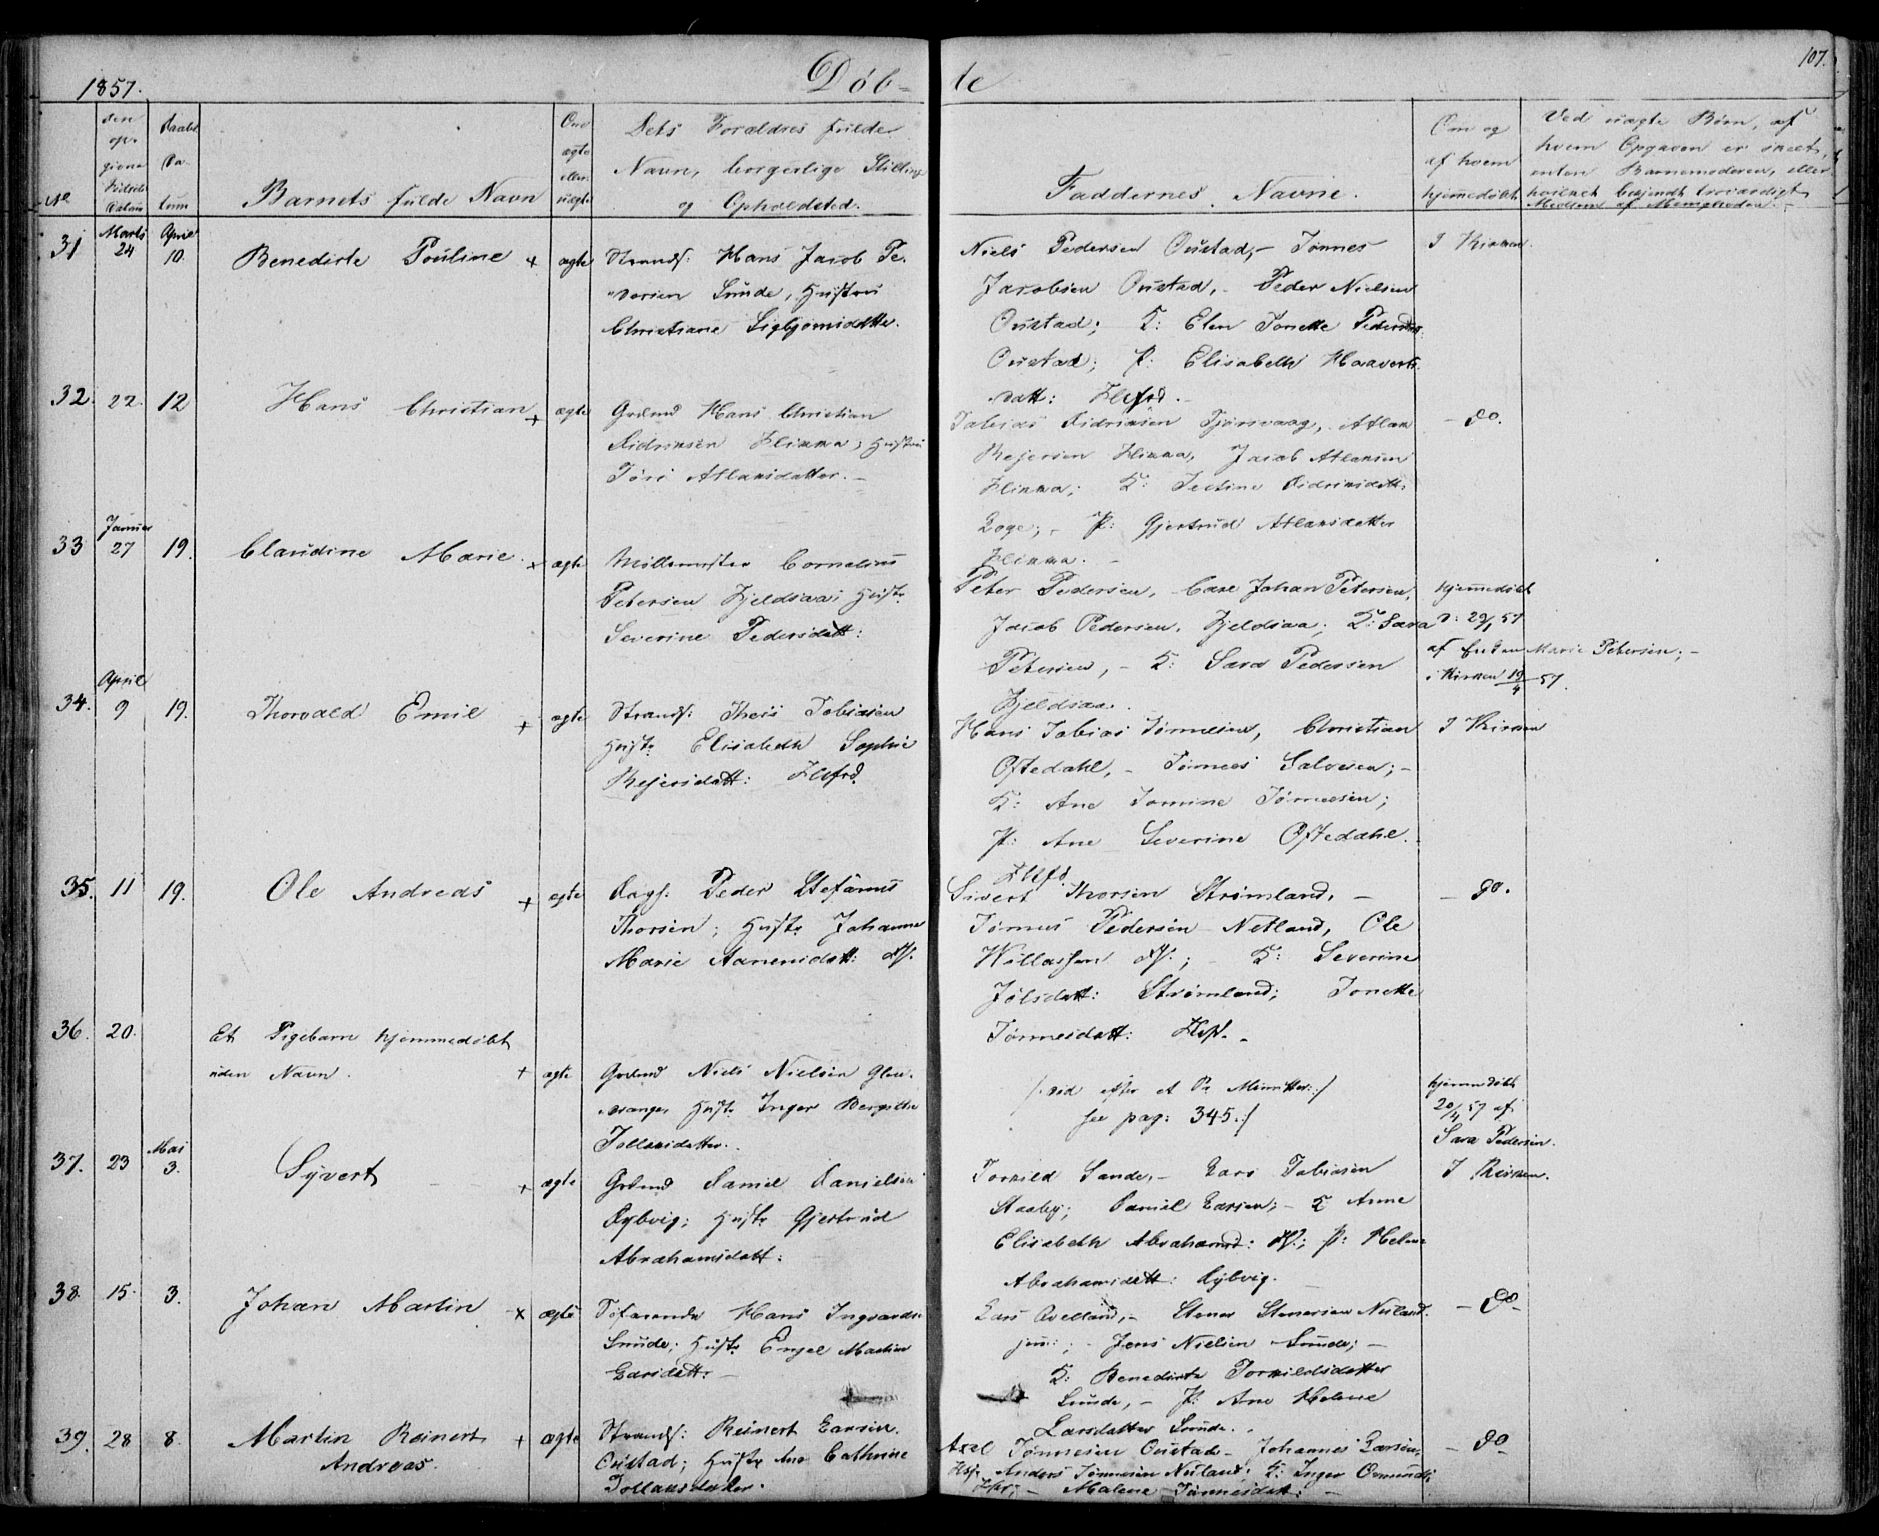 1857.
Døb-
te
107.
No
den op-
giene
Fødsels
Datum
Daabs
Da-
tum
Barnets fulde Navn
Om
ægte
eller
uægte
Dets Forældres fulde
Navn, borgerlige Stilling
og Opholdsted.
Faddernes Navne.
Om og
af hvem
hjemmedøbt
Ved uægte Børn, af
hvem Opgaven er skeet,
enten Barnemoderen, eller
hvilket bekjendt troværdigt
Medlem af Menigheden.
31 Marts 24 April 10. Benedicte Pouline + ægte
Strands: Hans Jacob Pe-
dersen Sunde, Hustru
Christiane Sigbjørnsdatter.
Niels Pedersen Oustad, - Tønnes
Jacobsen Oustad, - Peder Nielsen
Oustad; K: Elen Tonette Pedersdtr
Oustad; P: Elisabeth Haavorts
datt: Flefrd.
I Kirken.
32. 22. 12 Hans Christian + ægte
Grdmd Hans Christian
Didriksen Flikka; Hustru
Tøri Atlaksdatter. -
Tobias Didriksen Tjørsvaag, Atlak
Rejersen Flikka, Jacob Atlaksen
Flikka; K: Didriksdatt:
Loge; - P: Gjertrud Atlaksdatter
Flikka. -
- do.
33 Januar 27 19. Claudine Marie. + ægte
Møllemester Cornelius
Petersen Fjeldsaa; Hustr.
Severine Pedersdatt:
Peter Pedersen, Carl Johan Petersen,
Jacob Pedersen, Fjeldsaa; K: Sara
Petersen, - K: Sara Pedersen
Fjeldsaa.
hjemmedøbt
d: 29/1 57
af Enken Marie Petersen; -
i Kirken 19/4 57.
34. April 9 19. Thorvald Emil + ægte
Strands: Theis Tobiasen
Hustr Elisabeth Sophie
Rejersdatt: Flefrd.
Hans Tobias Tønnesen, Christian
Oftedahl, - Tønnes Salvesen; -
K: Ane Tomine Tønnesen;
P: Ane Severine Oftedahl.
Flefd.
I Kirken
35. 11 19. Ole Andreas + ægte
Dags: Peder Stefanus
Thorsen; Hustr Johanne
Marie Aanensdatt: Hs.
Sivert Thorsen Strømland, -
Tønnes Pedersen Netland, Ole
Willassen Hs.; - K: Severine
Joelsdatt: Strømland; Tonette
Tønnesdatt: Flef. -
- do.
36. 20. Et Pigebarn hjemmedøbt
uden Navn. + ægte
Grdmd Niels Nielsen Glen-
drange, Hustr Inger Bergitte
Tollaksdatter.
/: død efter et Par Minutter :/
see pag: 345. :/
hjemmedøbt
20/4 57 af
Sara Pedersen.
37. 23 Mai 3. Syvert + ægte
Grdmd Daniel Danielsen
Dybvig; Hustr Gjertrud
Abrahamsdatt:
Torkild Sande, - Lars Tobiasen
Staaby; Daniel Larsen; - K Anne
Elisabeth Abrahamsd: Hs.; P: Helene
Abrahamsdatt: Dybvig.
I Kirken.
38. 15. 3. Johan Martin x ægte
Søfarende Hans Ingvardsen
Sunde; Hustr Engel Martine
Larsdatt: -
Lars Qvelland, - Stener Stenersen Nuland
jun: ; - Jens Nielsen Sunde; -
K: Benedicte Torkildsdatter
Sunde, - P: Ane Helene
Larsdatter Sunde.
- do -
39. 28 8. Martin Reinert
Andreas. + ægte
Strands: Reinert Larsen
Oustad; Hustr Ane Cathrine
Tollaksdatter.
Axel Tønnesen Oustad - Johannes Larsen
Anders Tønnesen Nuland; K: Inger Osmunds
- Malene Tønnesdatt: -
- do -